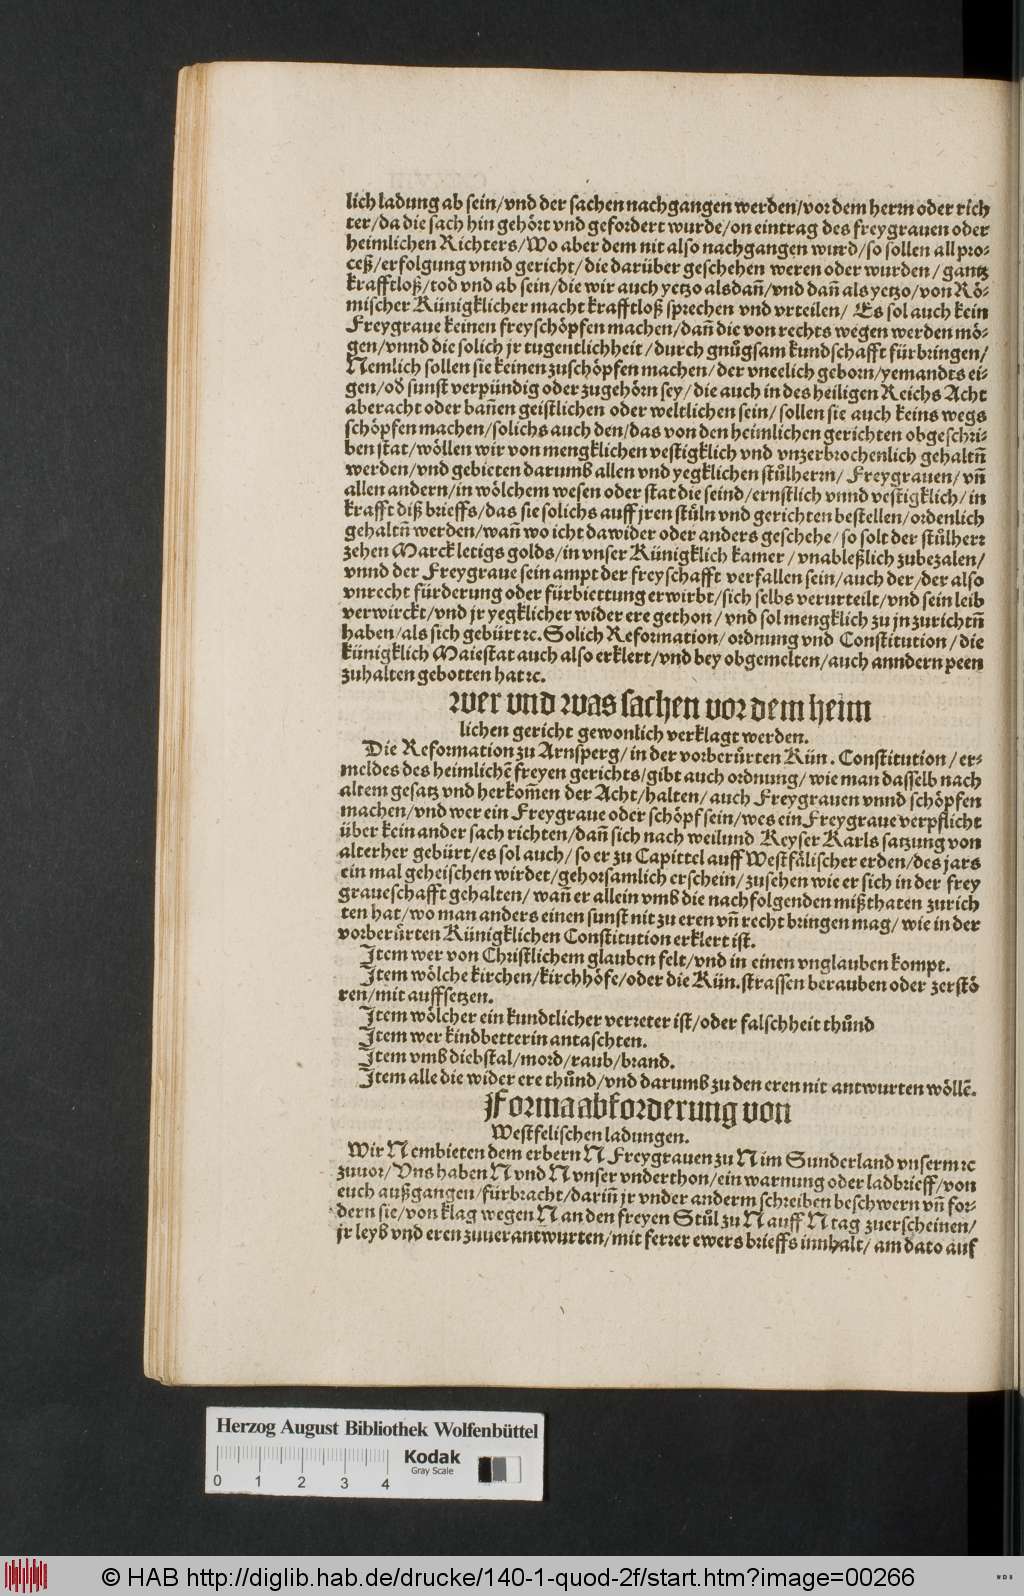 lich ladung ab sein/vnd der sachen nachgangen werden/vor dem herrn oder rich
ter/da die sach hin gehört vnd gefordert wurde/on eintrag des freygrauen oder
heimlichen Richters/Wo aber dem nit also nachgangen wurd/so sollen all pro-
ceß/erfolgung vnnd gericht/die darüber geschehen weren oder wurden/gantz
krafftloß/tod vnd ab sein/die wir auch yetzo alsdañ/vnd dañ als yetzo/von Rö-
mischer Künigklicher macht krafftloß sprechen vnd vrteilen/Es sol auch kein
Freygraue keinen freyschöpfen machen/dañ die von rechts wegen werden mö-
gen/vnnd die solich jr tugentlichheit/durch gnůgsam kundschafft fürbringen/
Nemlich sollen sie keinen zuschöpfen machen/der vneelich geborn/yemandts ei-
gen/oď sunst verpündig oder zugehörn sey/die auch in des heiligen Reichs Acht
aberacht oder bañen geistlichen oder weltlichen sein/sollen sie auch keins wegs
schöpfen machen/solichs auch den/das von den heimlichen gerichten obgeschri-
ben stat/wöllen wir von mengklichen vestigklich vnd vnzerbrochenlich gehaltñ
werden/vnd gebieten darumb allen vnd yegklichen stůlherrn/Freygrauen/vñ
allen andern/in wölchem wesen oder stat die seind/ernstlich vnnd vestigklich/in
krafft diß brieffs/das sie solichs auff jren stůln vnd gerichten bestellen/ordenlich
gehaltñ werden/wañ wo icht dawider oder anders geschehe/so solt der stůlherr
zehen Marck letigs golds/in vnser Künigklich kamer/vnableßlich zubezalen/
vnnd der Freygraue sein ampt der freyschafft verfallen sein/auch der/der also
vnrecht fürderung oder fürbiettung erwirbt/sich selbs verurteilt/vnd sein leib
verwirckt/vnd jr yegklicher wider ere gethon/vnd sol mengklich zu jn zurichtñ
haben/als sich gebürt ꝛc. Solich Reformation/ordnung vnd Constitution/die
künigklich Maiestat auch also erklert/vnd bey obgemelten/auch anndern peen
zuhalten gebotten hat ꝛc.
Wer vnd was sachen vor dem heim
lichen gericht gewonlich verklagt werden.
Die Reformation zu Arnsperg/in der vorberůrten Kün. Constitution/er-
meldes des heimlichẽ freyen gerichts/gibt auch ordnung/wie man dasselb nach
altem gesatz vnd herkom̃en der Acht/halten/auch Freygrauen vnnd schöpfen
machen/vnd wer ein Freygraue oder schöpf sein/wes ein Freygraue verpflicht
über kein ander sach richten/dañ sich nach weilund Keyser Karls satzung von
alterher gebürt/es sol auch/so er zu Capittel auff Westfälischer erden/des jars
ein mal geheischen wirdet/gehorsamlich erschein/zusehen wie er sich in der frey
graueschafft gehalten/wañ er allein vmb die nachfolgenden mißthaten zurich
ten hat/wo man anders einen sunst nit zu eren vñ recht bringen mag/wie in der
vorberůrten Künigklichen Constitution erklert ist.
Item wer von Christlichem glauben felt/vnd in einen vnglauben kompt.
Item wölche kirchen/kirchhöfe/oder die Kün. strassen berauben oder zerstö
ren/mit auffsetzen.
Item wölcher ein kundtlicher verreter ist/oder falschheit thůnd
Item wer kindbetterin antaschten.
Item vmb diebstal/mord/raub/brand.
Item alle die wider ere thůnd/vnd darumb zu den eren nit antwurten wöllẽ.
Forma abforderung von
Westfelischen ladungen.
Wir N embieten dem erbern N Freygrauen zu N im Sunderland vnserm ꝛc
zuuor/Vns haben N vnd N vnser vnderthon/ein warnung oder ladbrieff/von
euch außgangen/fürbracht/dariñ jr vnder anderm schreiben beschwern vñ for-
dern sie/von klag wegen N an den freyen Stůl zu N auff N tag zuerscheinen/
jr leyb vnd eren zuuerantwurten/mit ferrer ewers brieffs innhalt/am dato auf
Herzog August Bibliothek Wolfenbüttel
Kodak
Gray Scale
0 1 2 3 4
© HAB http://diglib.hab.de/drucke/140-1-quod-2f/start.htm?image=00266